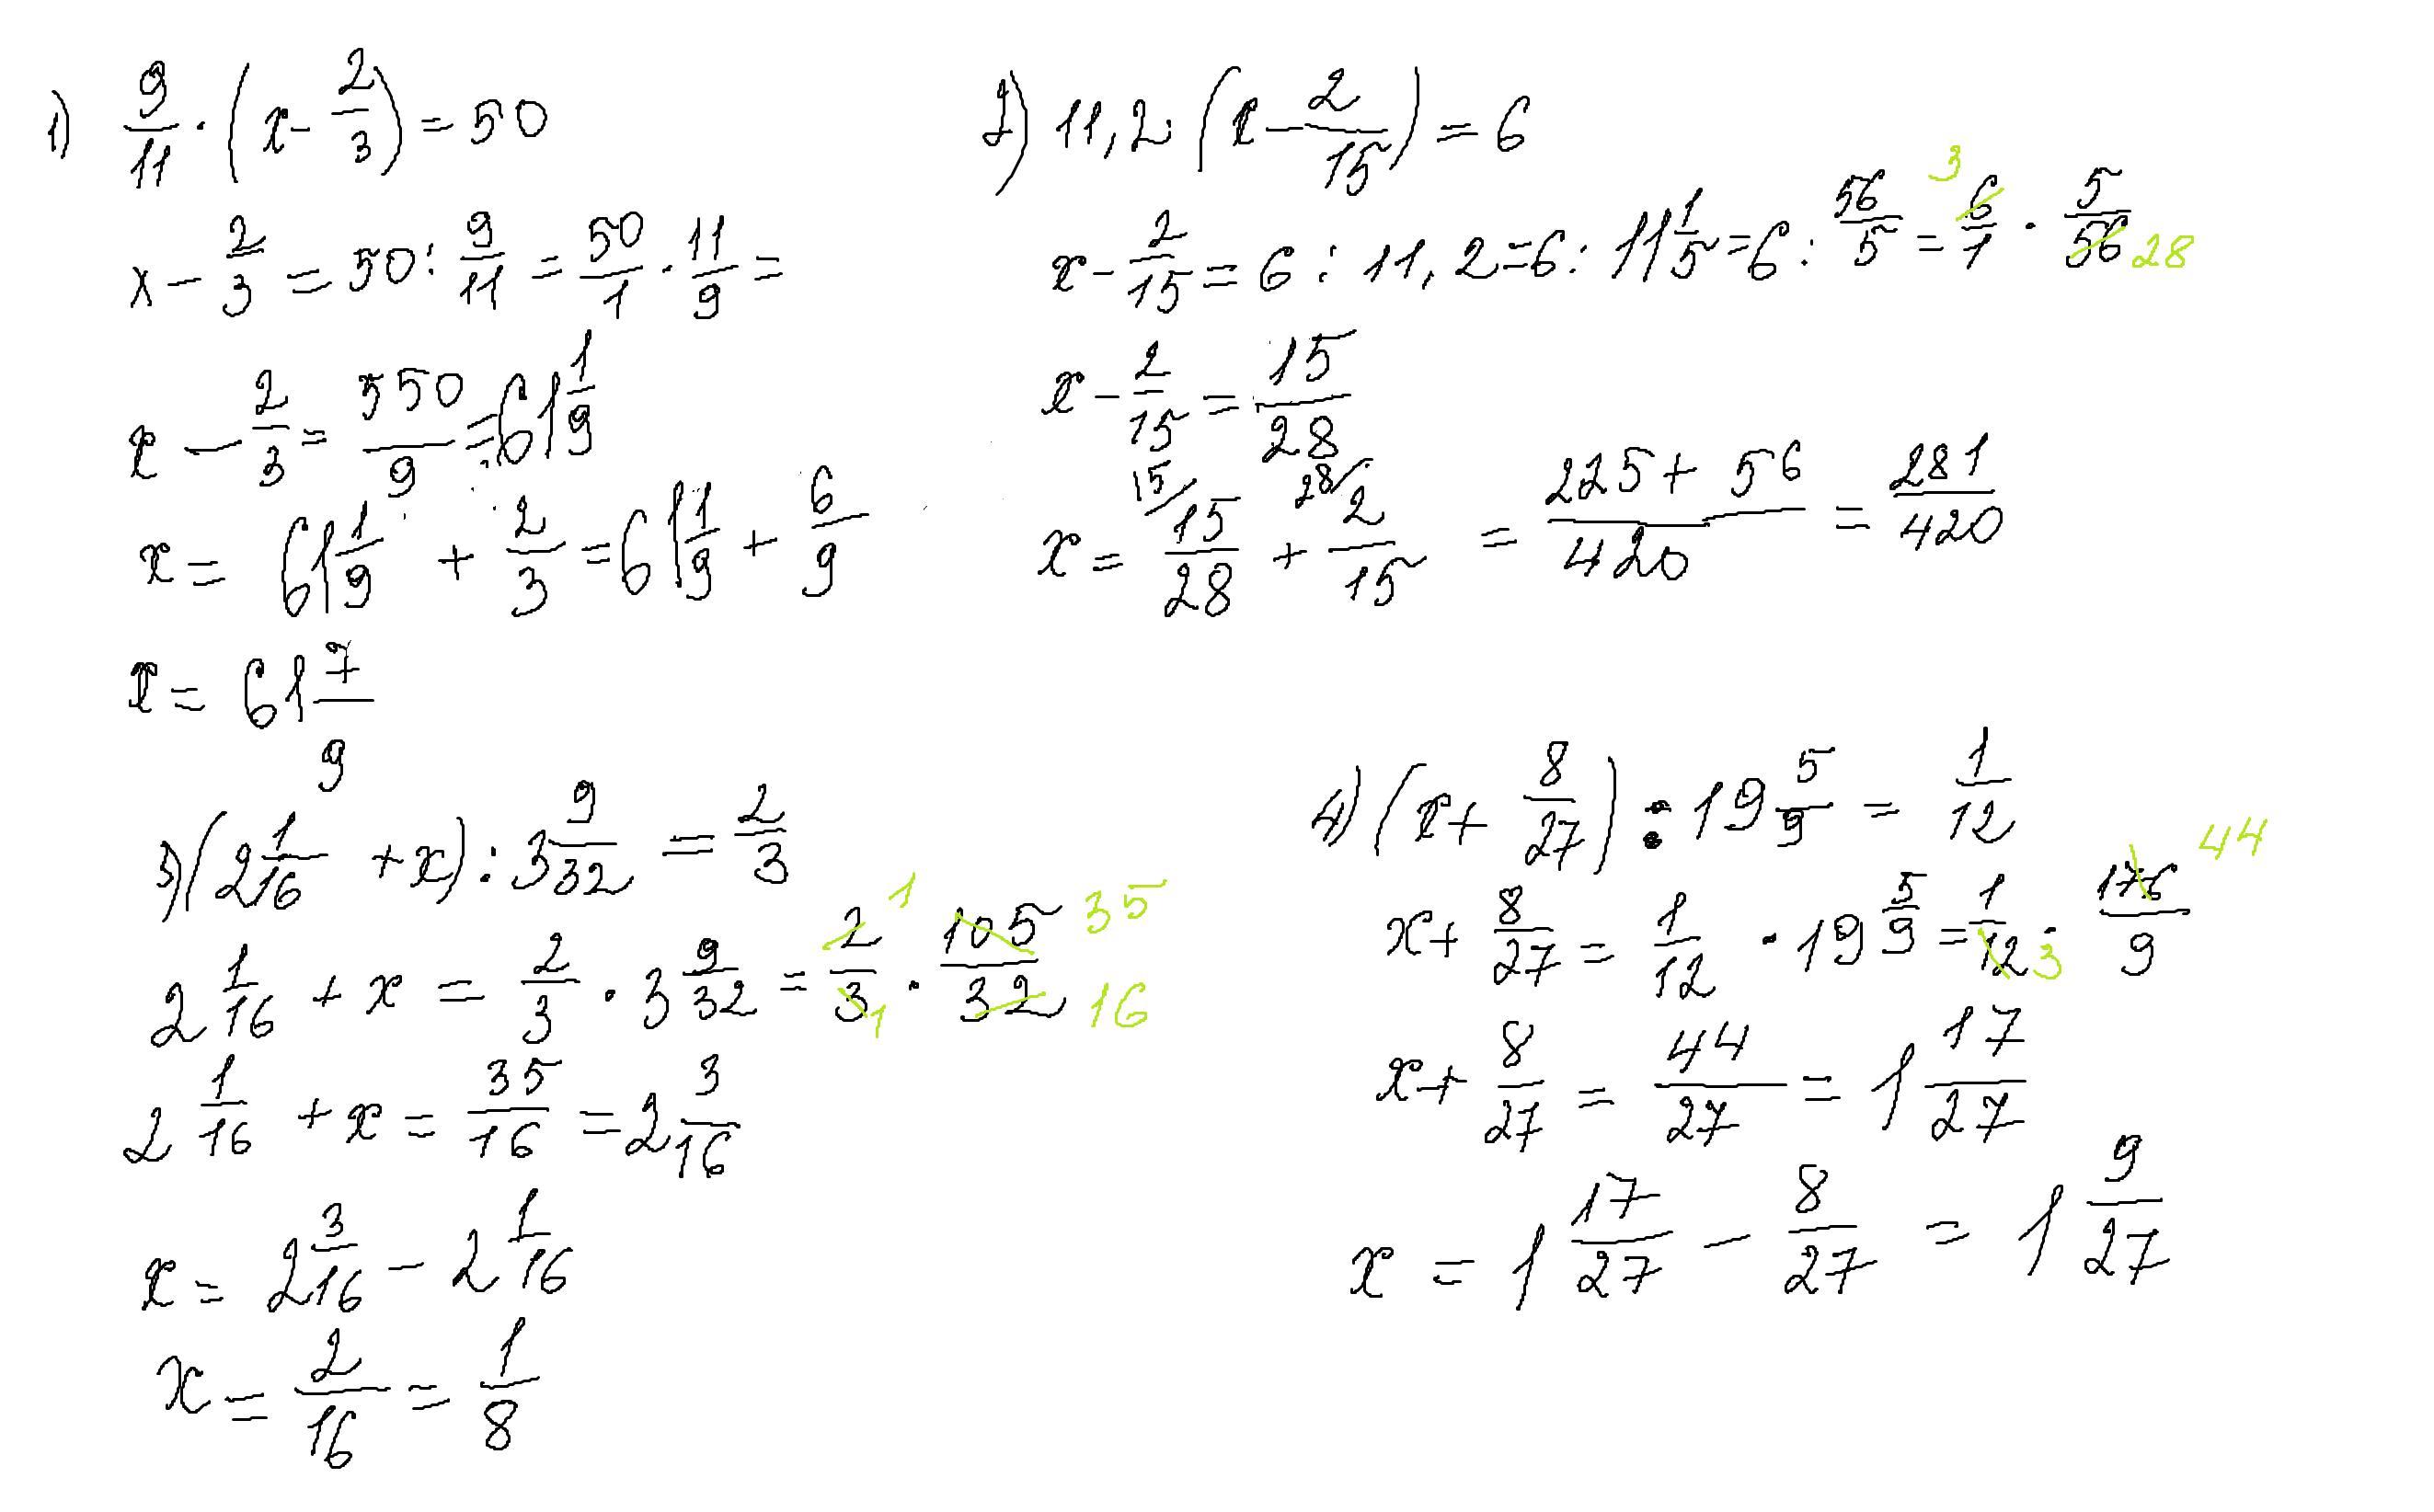 1) 9/11 · (x - 2/3) = 50
x - 2/3 = 50 : 9/11 = 50/1 · 11/9 =
x - 2/3 = 550/9 = 61 1/9
x = 61 1/9 + 2/3 = 61 1/9 + 6/9
x = 61 7/9
2) 11,2 · (x - 2/15) = 6
x - 2/15 = 6 : 11,2 = 6 : 11 1/5 = 6 : 56/5 = 6/1 · 5/56 3 28
x - 2/15 = 15/28
x = 15/ 15/28 + 28/ 2/15 = 225 + 56/420 = 281/420
3) (2 1/16 + x) : 3 9/32 = 2/3
2 1/16 + x = 2/3 · 3 9/32 = 2/3 · 105/32 1 1 35 16
2 1/16 + x = 35/16 = 2 3/16
x = 2 3/16 - 2 1/16
x = 2/16 = 1/8
4) (x + 8/27) : 19 5/9 = 1/12
x + 8/27 = 1/12 · 19 5/9 = 1/12 · 176/9 3 44
x + 8/27 = 44/27 = 1 17/27
x = 1 17/27 - 8/27 = 1 9/27